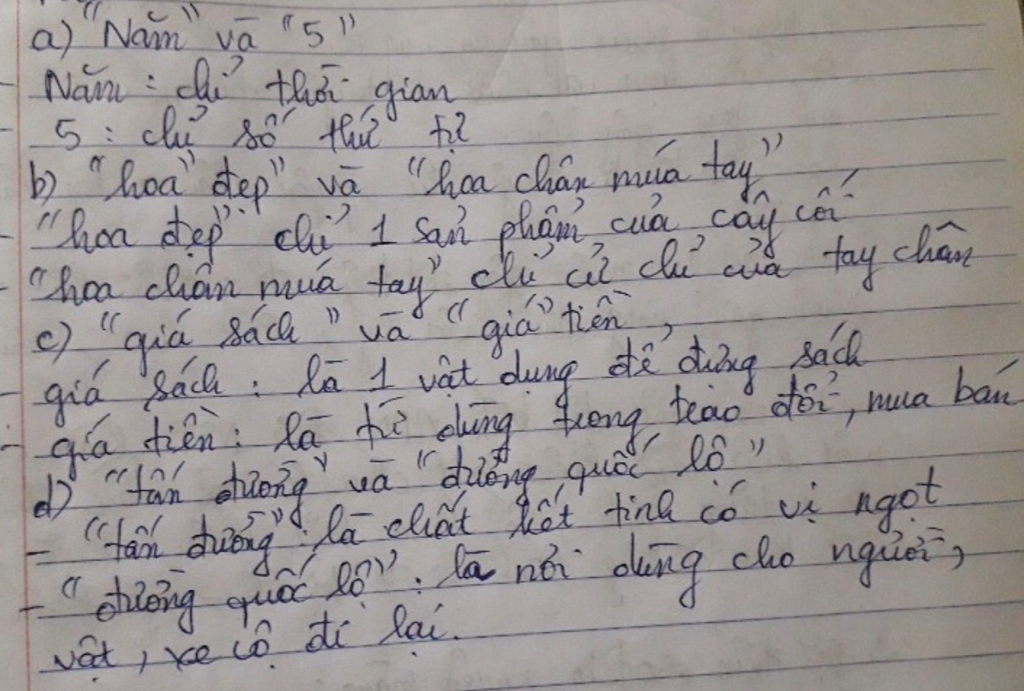 a) "Năm" và "5"
Năm : chỉ thời gian
5 : chỉ số thứ tự
b) "hoa" đẹp" và "hoa chân múa tay"
"hoa đẹp" chỉ 1 sản phẩm của cây cối
"hoa chân múa tay" chỉ cử chỉ của tay chân
c) "giá sách" và "giá" tiền
giá sách : là 1 vật dụng để đựng sách
giá tiền : là từ dùng trong trao đổi, mua bán
d) "tấn đường" và "đường quốc lộ"
- "tấn đường" : là chất kết tinh có vị ngọt
- "đường quốc lộ" : là nơi dùng cho người,
vật, xe cộ đi lại.